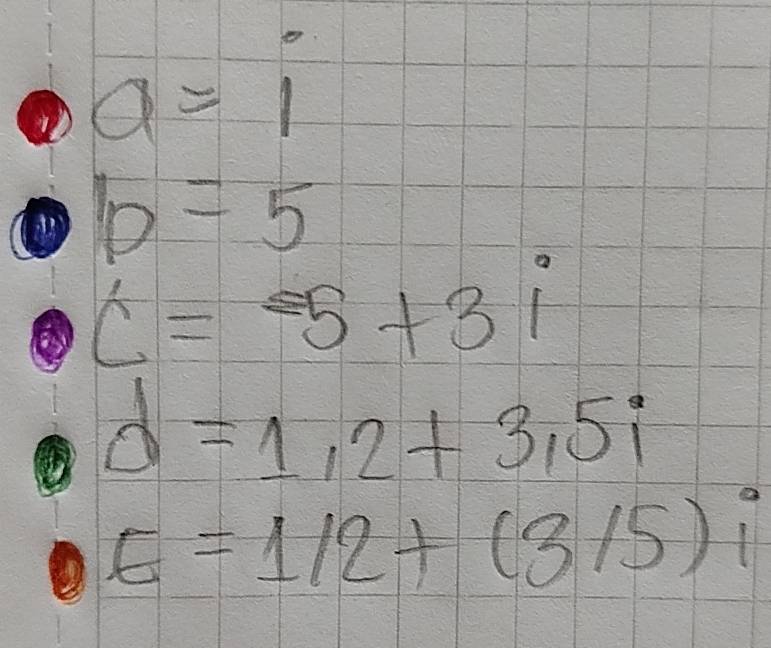 a = i
b = 5
c = -5 + 3 i
d = 1,2 + 3,5i
E = 1/2 + (3/5) i